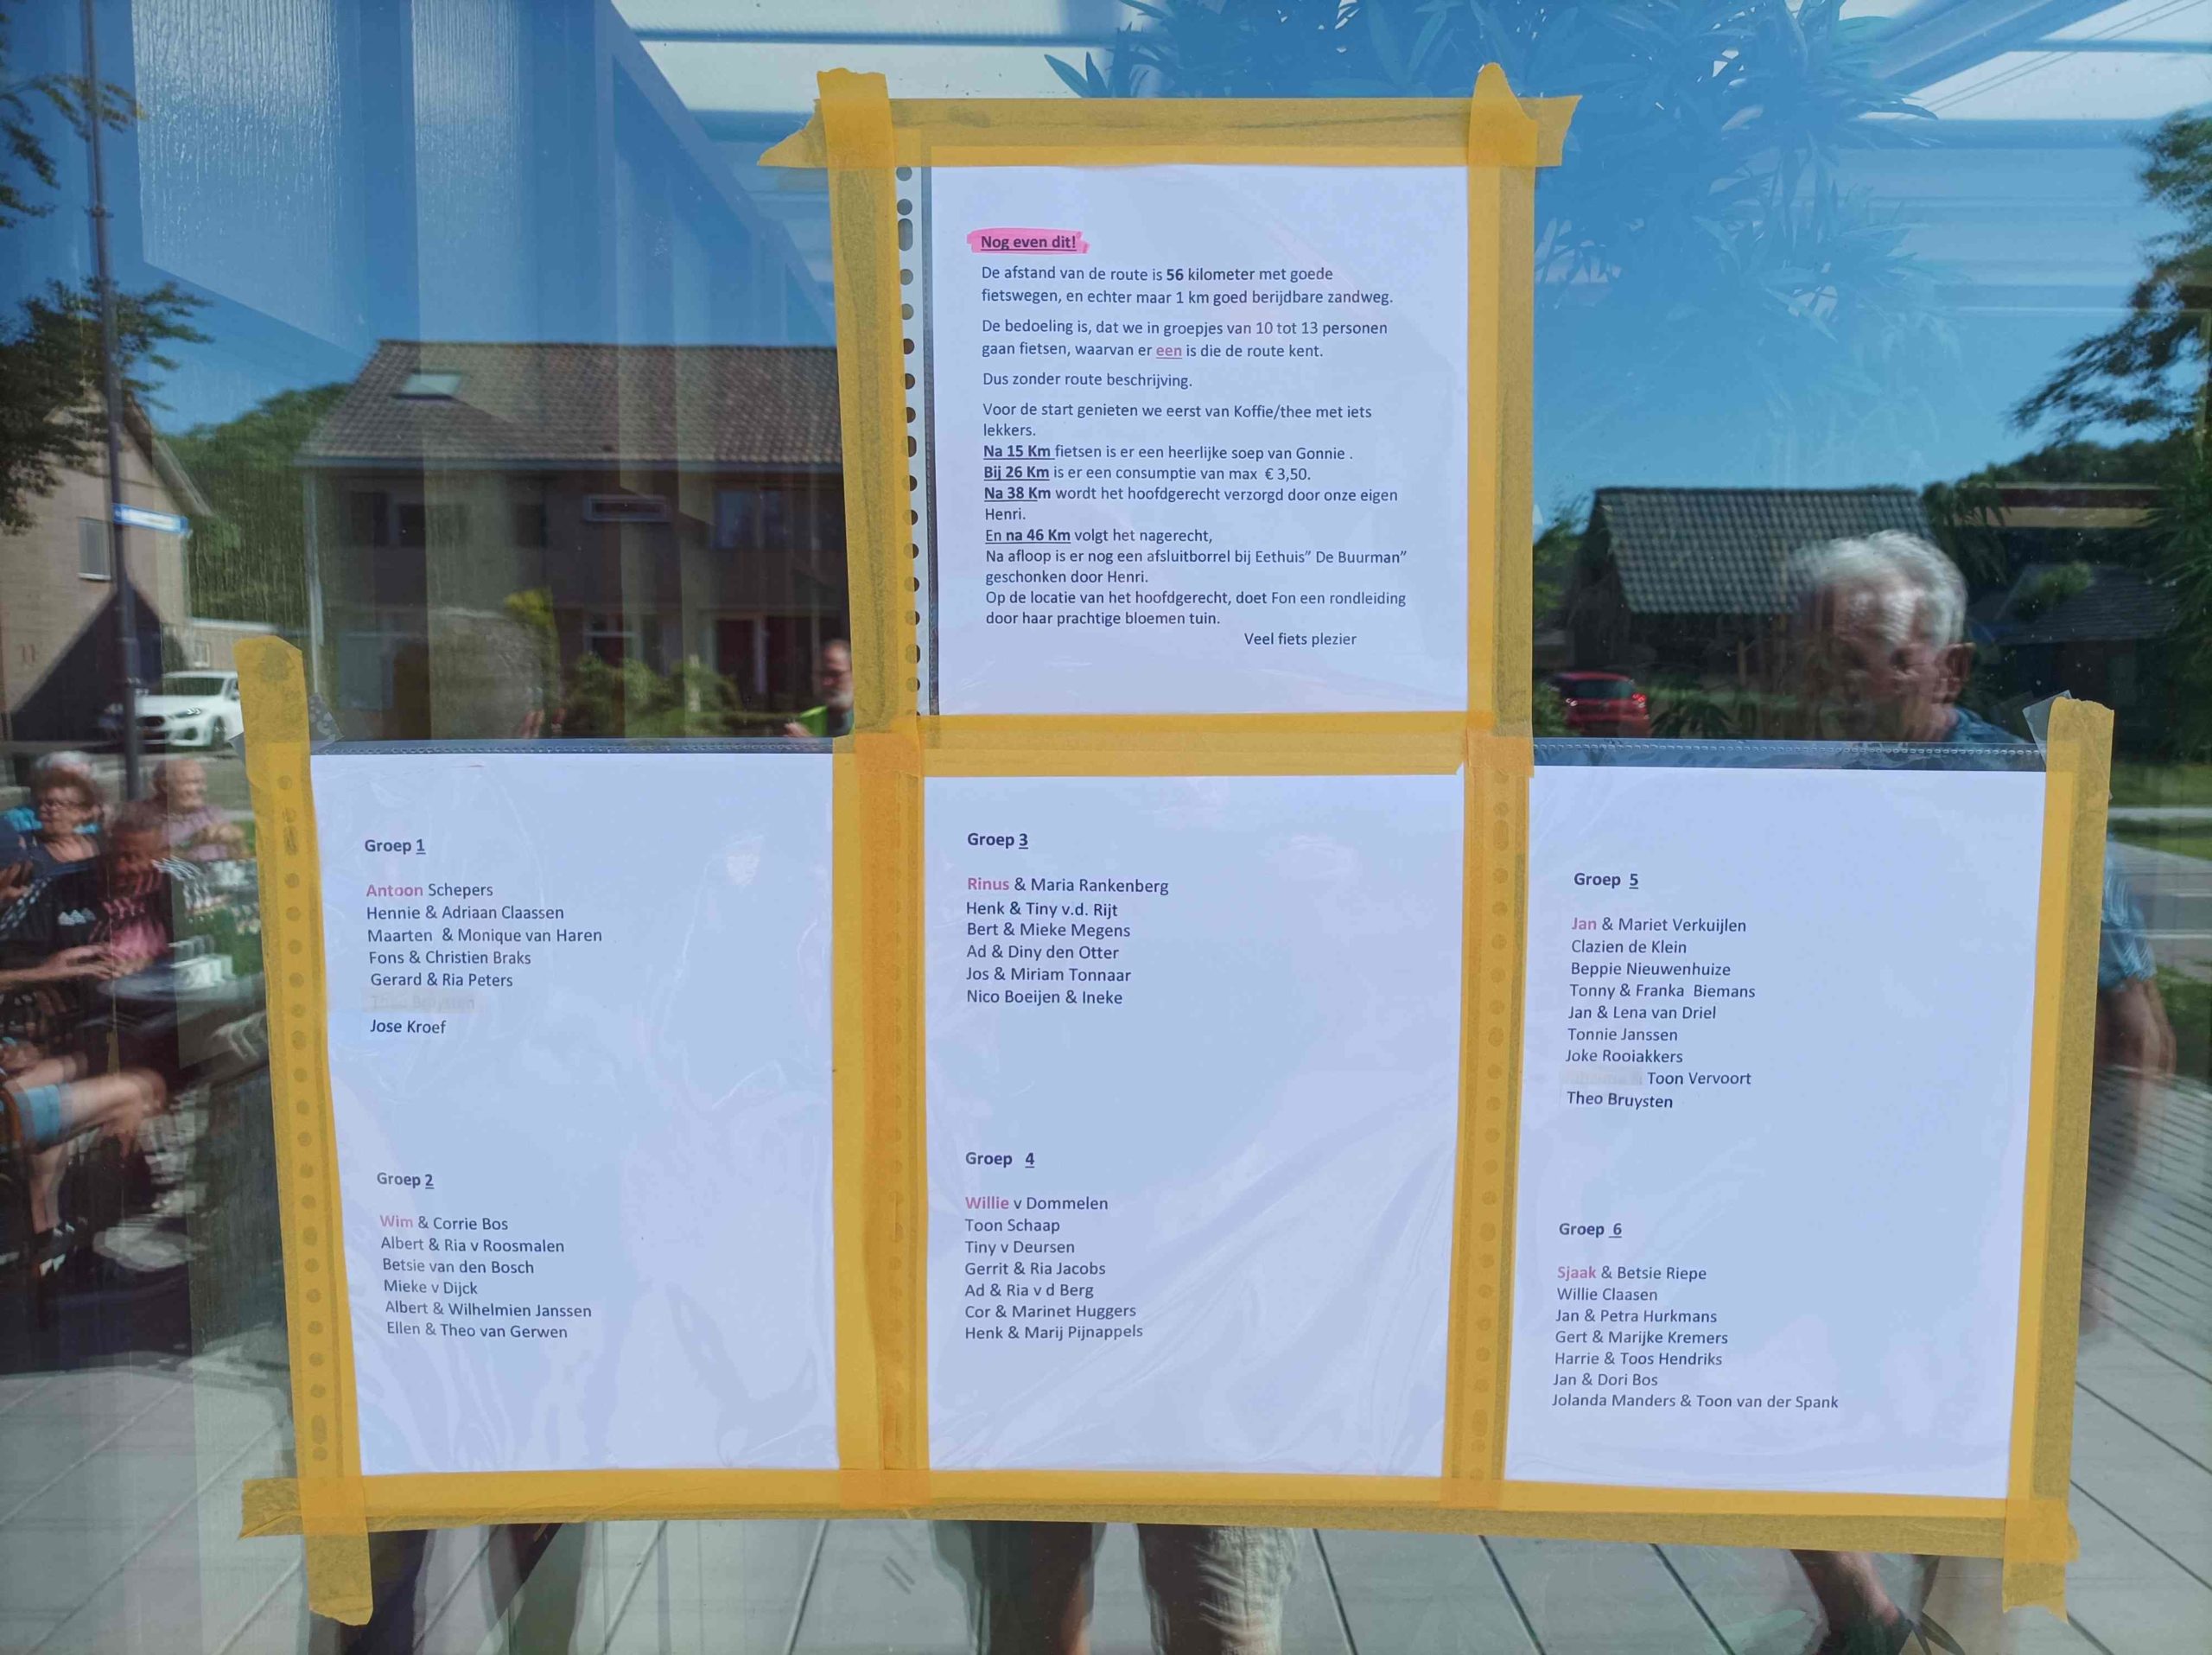 Nog even dit!
De afstand van de route is 56 kilometer met goede
fietswegen, en echter maar 1 km goed berijdbare zandweg.
De bedoeling is, dat we in groepjes van 10 tot 13 personen
gaan fietsen, waarvan er een is die de route kent.
Dus zonder route beschrijving.
Voor de start genieten we eerst van Koffie/thee met iets
lekkers.
Na 15 Km fietsen is er een heerlijke soep van Gonnie .
Bij 26 Km is er een consumptie van max € 3,50.
Na 38 Km wordt het hoofdgerecht verzorgd door onze eigen
Henri.
En na 46 Km volgt het nagerecht,
Na afloop is er nog een afsluitborrel bij Eethuis” De Buurman”
geschonken door Henri.
Op de locatie van het hoofdgerecht, doet Fon een rondleiding
door haar prachtige bloemen tuin.
Veel fiets plezier
Groep 1
Antoon Schepers
Hennie & Adriaan Claassen
Maarten & Monique van Haren
Fons & Christien Braks
Gerard & Ria Peters
Jose Kroef
Groep 2
Wim & Corrie Bos
Albert & Ria v Roosmalen
Betsie van den Bosch
Mieke v Dijck
Albert & Wilhelmien Janssen
Ellen & Theo van Gerwen
Groep 3
Rinus & Maria Rankenberg
Henk & Tiny v.d. Rijt
Bert & Mieke Megens
Ad & Diny den Otter
Jos & Miriam Tonnaar
Nico Boeijen & Ineke
Groep 4
Willie v Dommelen
Toon Schaap
Tiny v Deursen
Gerrit & Ria Jacobs
Ad & Ria v d Berg
Cor & Marinet Huggers
Henk & Marij Pijnappels
Groep 5
Jan & Mariet Verkuijlen
Clazien de Klein
Beppie Nieuwenhuize
Tonny & Franka Biemans
Jan & Lena van Driel
Tonnie Janssen
Joke Rooiakkers
Toon Vervoort
Theo Bruysten
Groep 6
Sjaak & Betsie Riepe
Willie Claasen
Jan & Petra Hurkmans
Gert & Marijke Kremers
Harrie & Toos Hendriks
Jan & Dori Bos
Jolanda Manders & Toon van der Spank